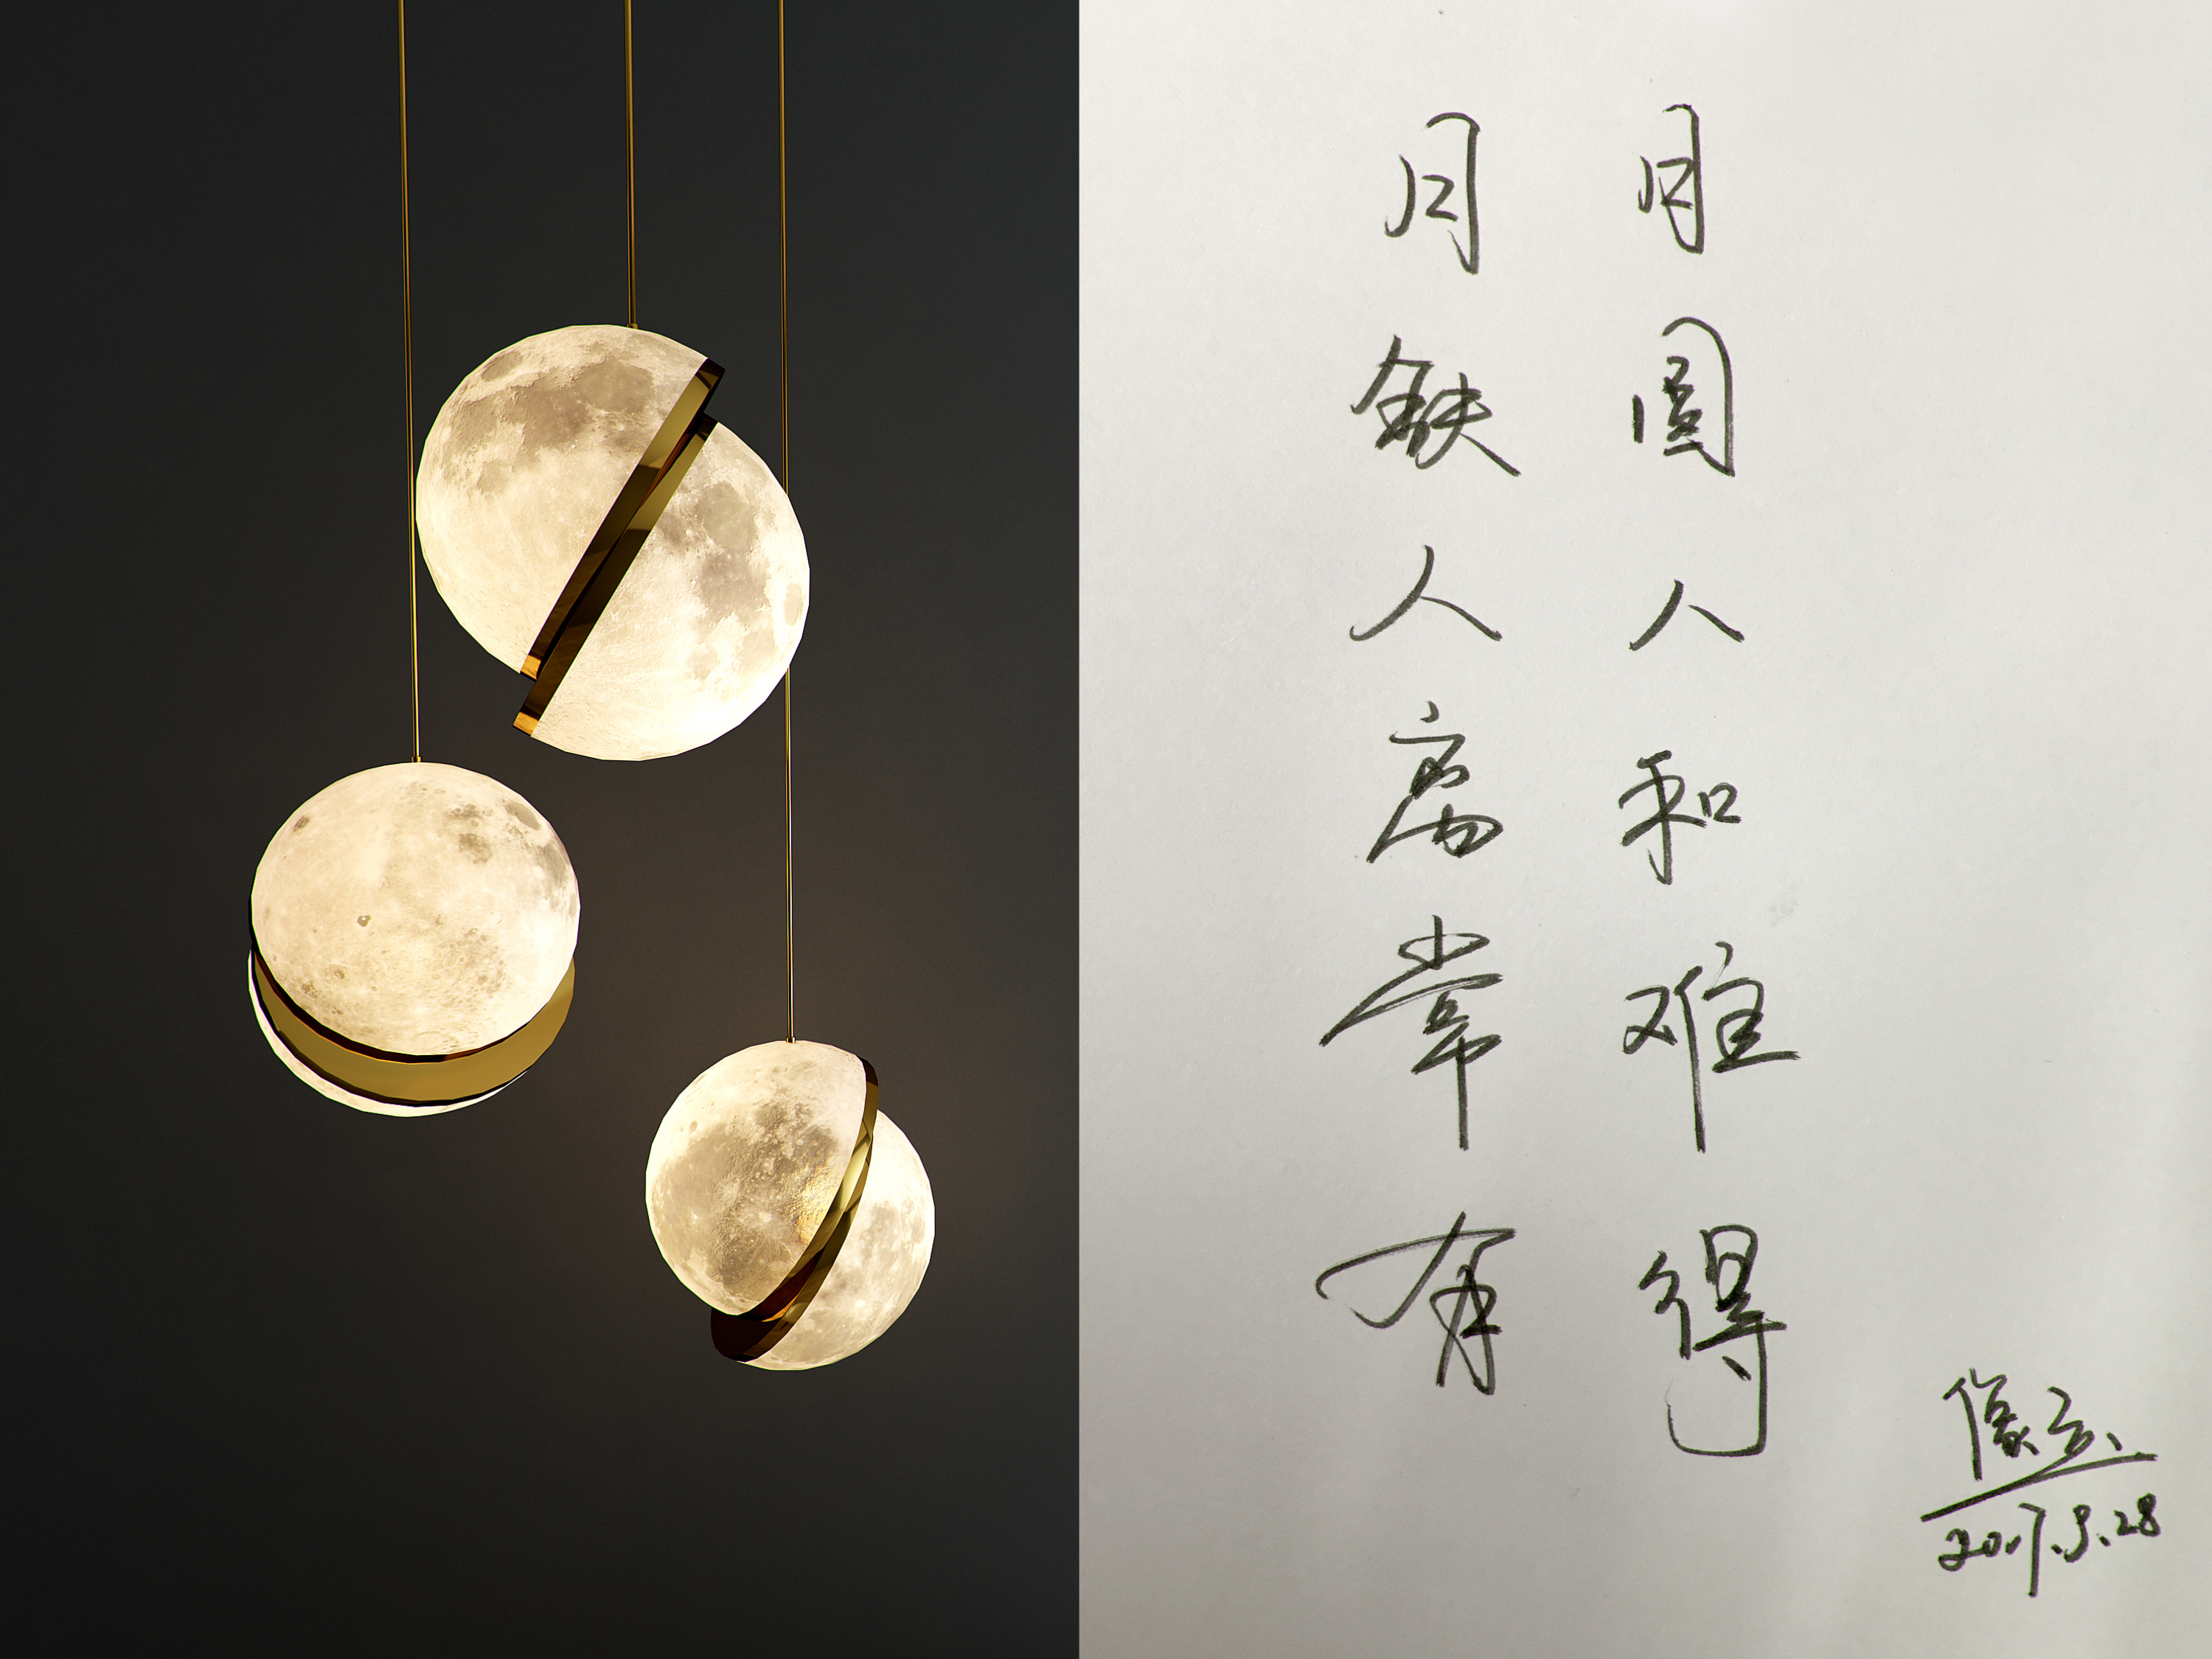 月圆人和难得
月缺人离常有
2017.9.28